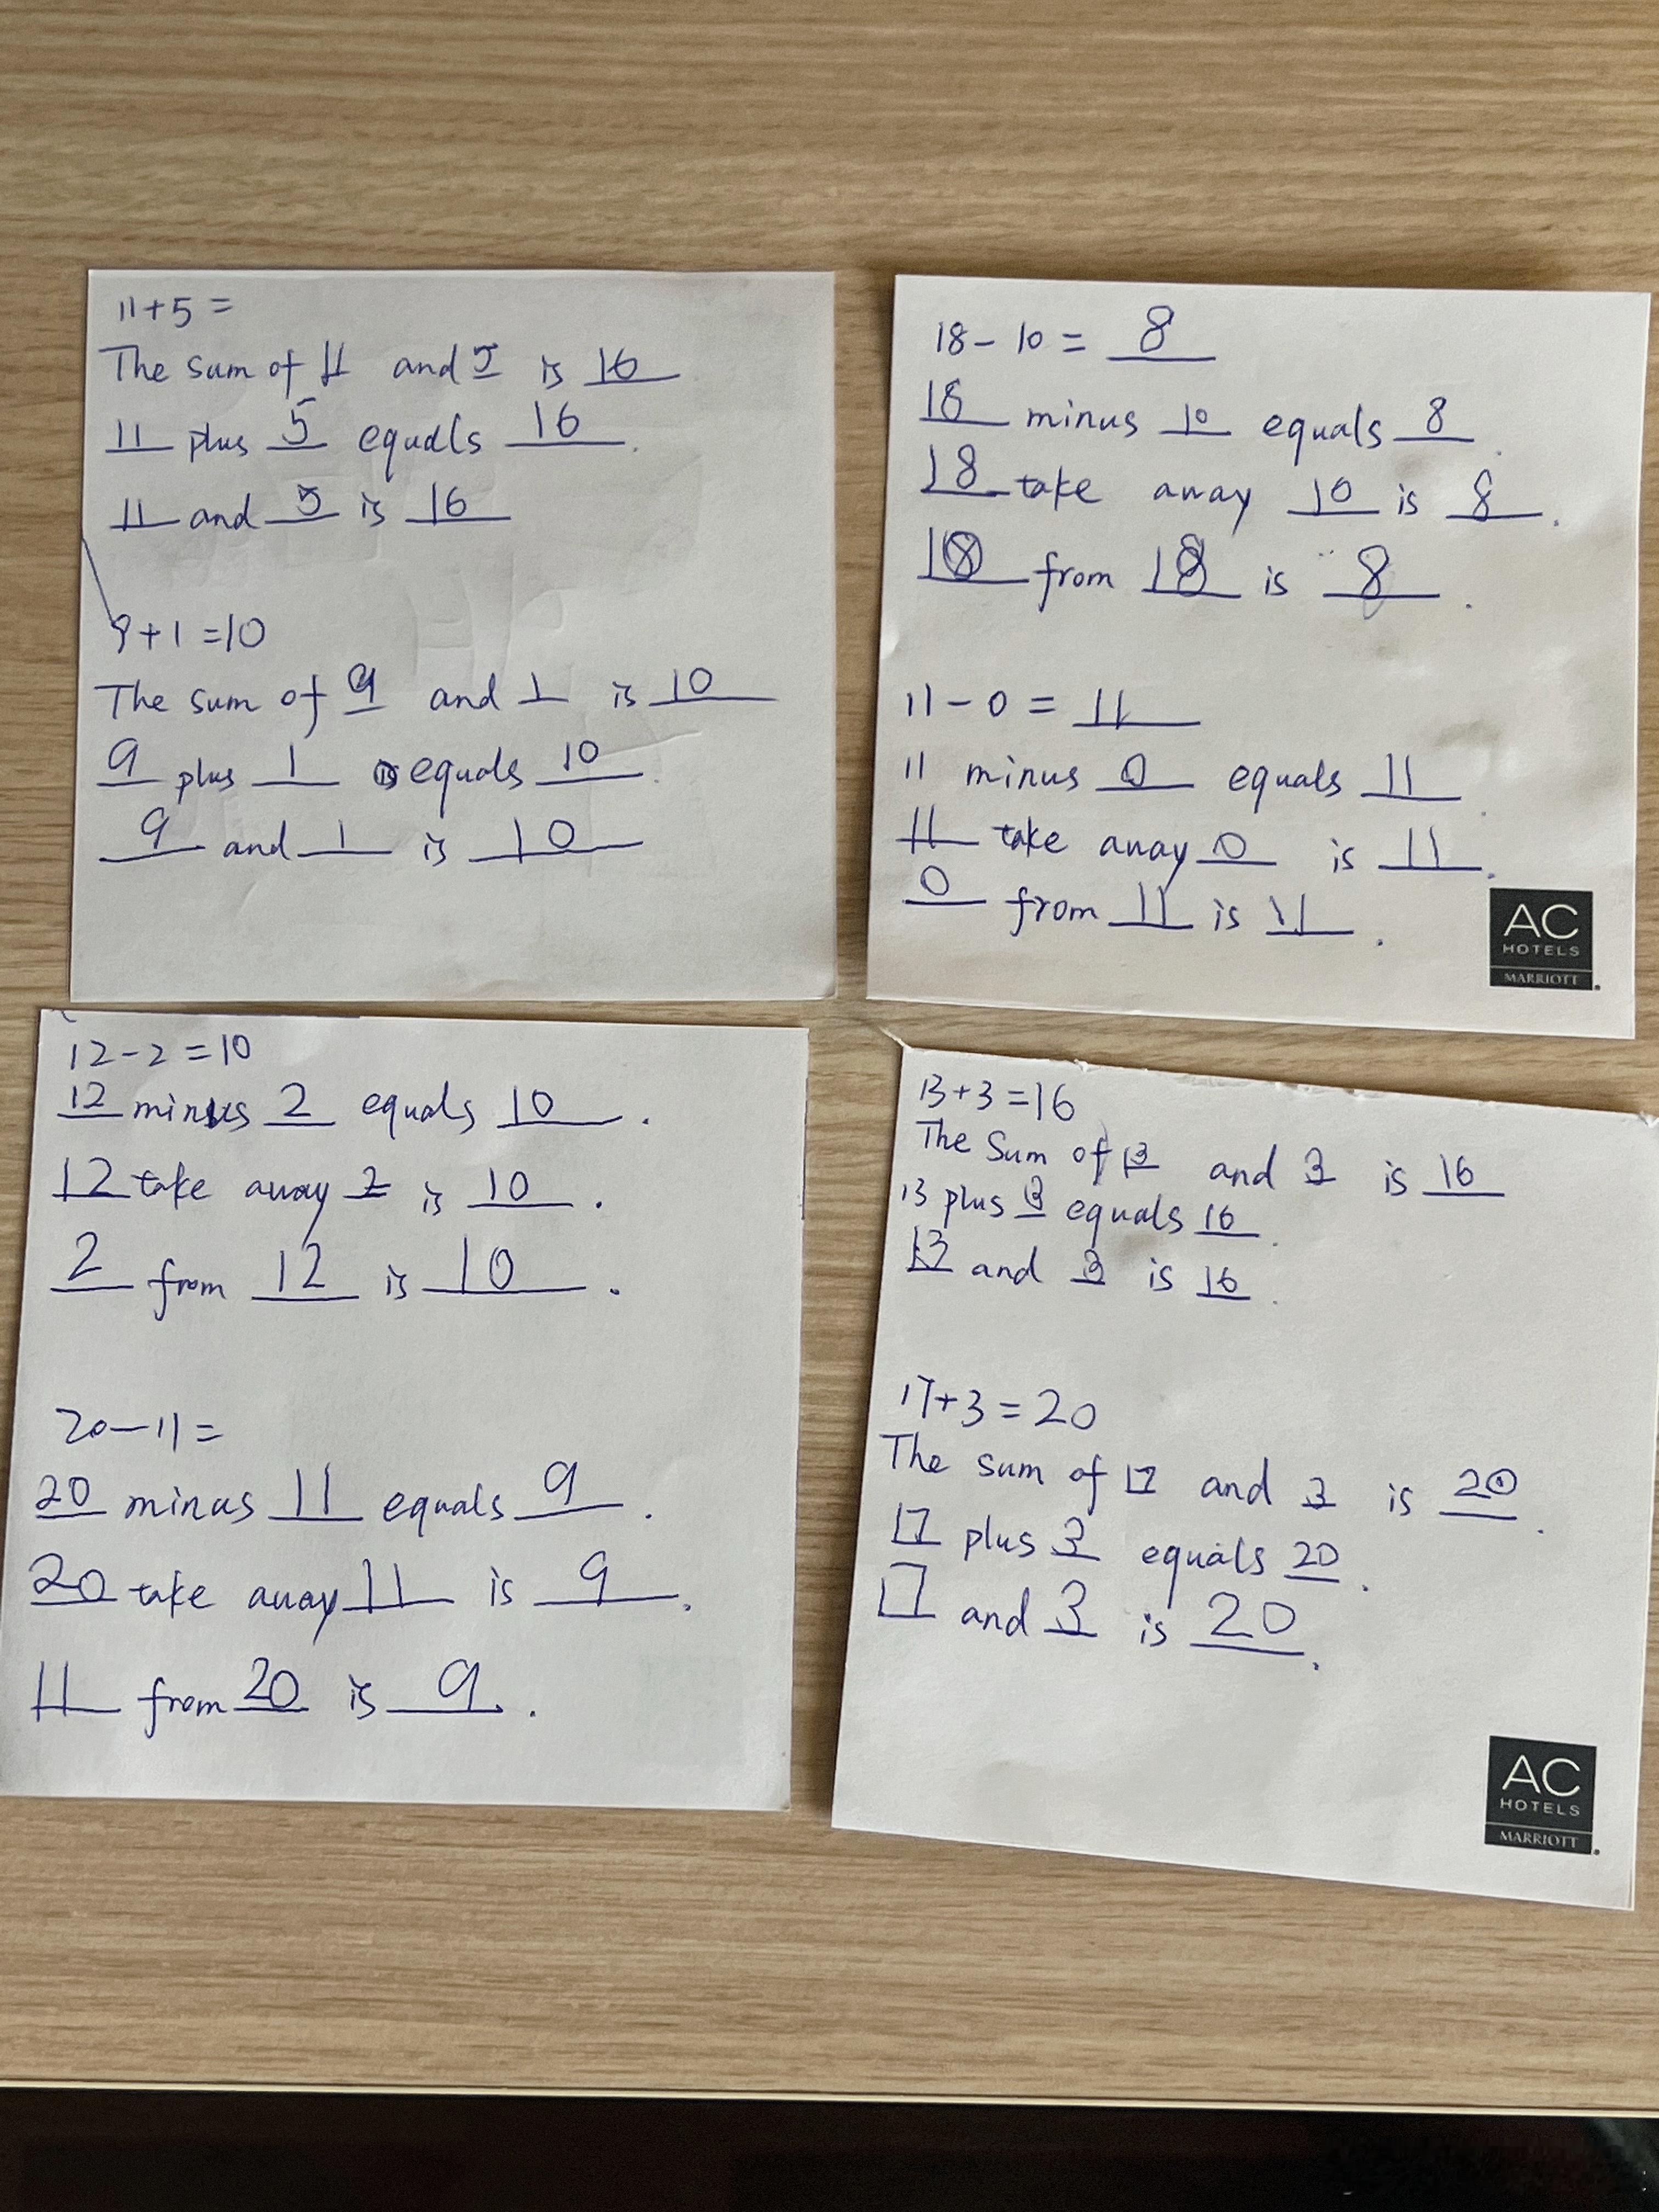 11+5=
The sum of 11 and 5 is 16
11 plus 5 equals 16.
11 and 5 is 16
9+1=10
The sum of 9 and 1 is 10
9 plus 1 equals 10.
9 and 1 is 10
18-10= 8
18 minus 10 equals 8.
18 take away 10 is 8.
10 from 18 is 8.
11-0= 11
11 minus 0 equals 11.
11 take away 0 is 11.
0 from 11 is 11.
AC
HOTELS
MARRIOTT
12-2=10
12 minus 2 equals 10.
12 take away 2 is 10.
2 from 12 is 10.
20-11=
20 minus 11 equals 9.
20 take away 11 is 9.
11 from 20 is 9.
13+3=16
The Sum of 13 and 3 is 16
13 plus 3 equals 16.
13 and 3 is 16.
17+3=20
The sum of 17 and 3 is 20.
17 plus 3 equals 20.
17 and 3 is 20.
AC
HOTELS
MARRIOTT